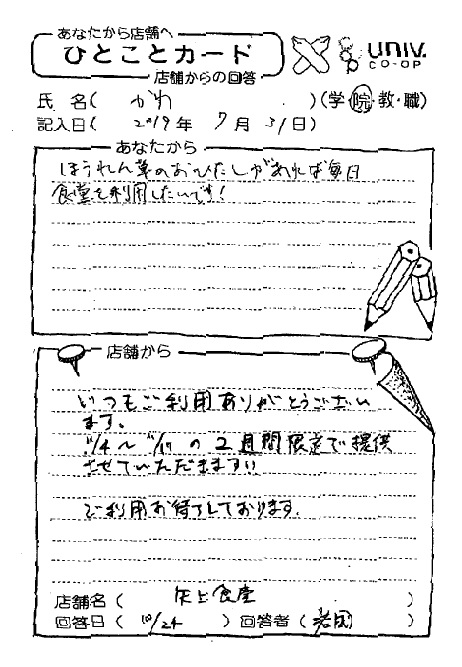 あなたから店舗へ
ひとことカード
店舗からの回答
univ.
CO-OP
氏 名( かわ )(学・院・教・職)
記入日( 2019 年 7 月 31 日)
あなたから
ほうれん草のおひたしがあれば毎日
食堂を利用したいです!
店舗から
いつもご利用ありがとうござい
ます。
11/4〜 の 2週間限定で提供
させていただきます!!
ご利用お待ちしております。
店舗名( 矢上食堂 )
回答日( 10/24 ) 回答者( )